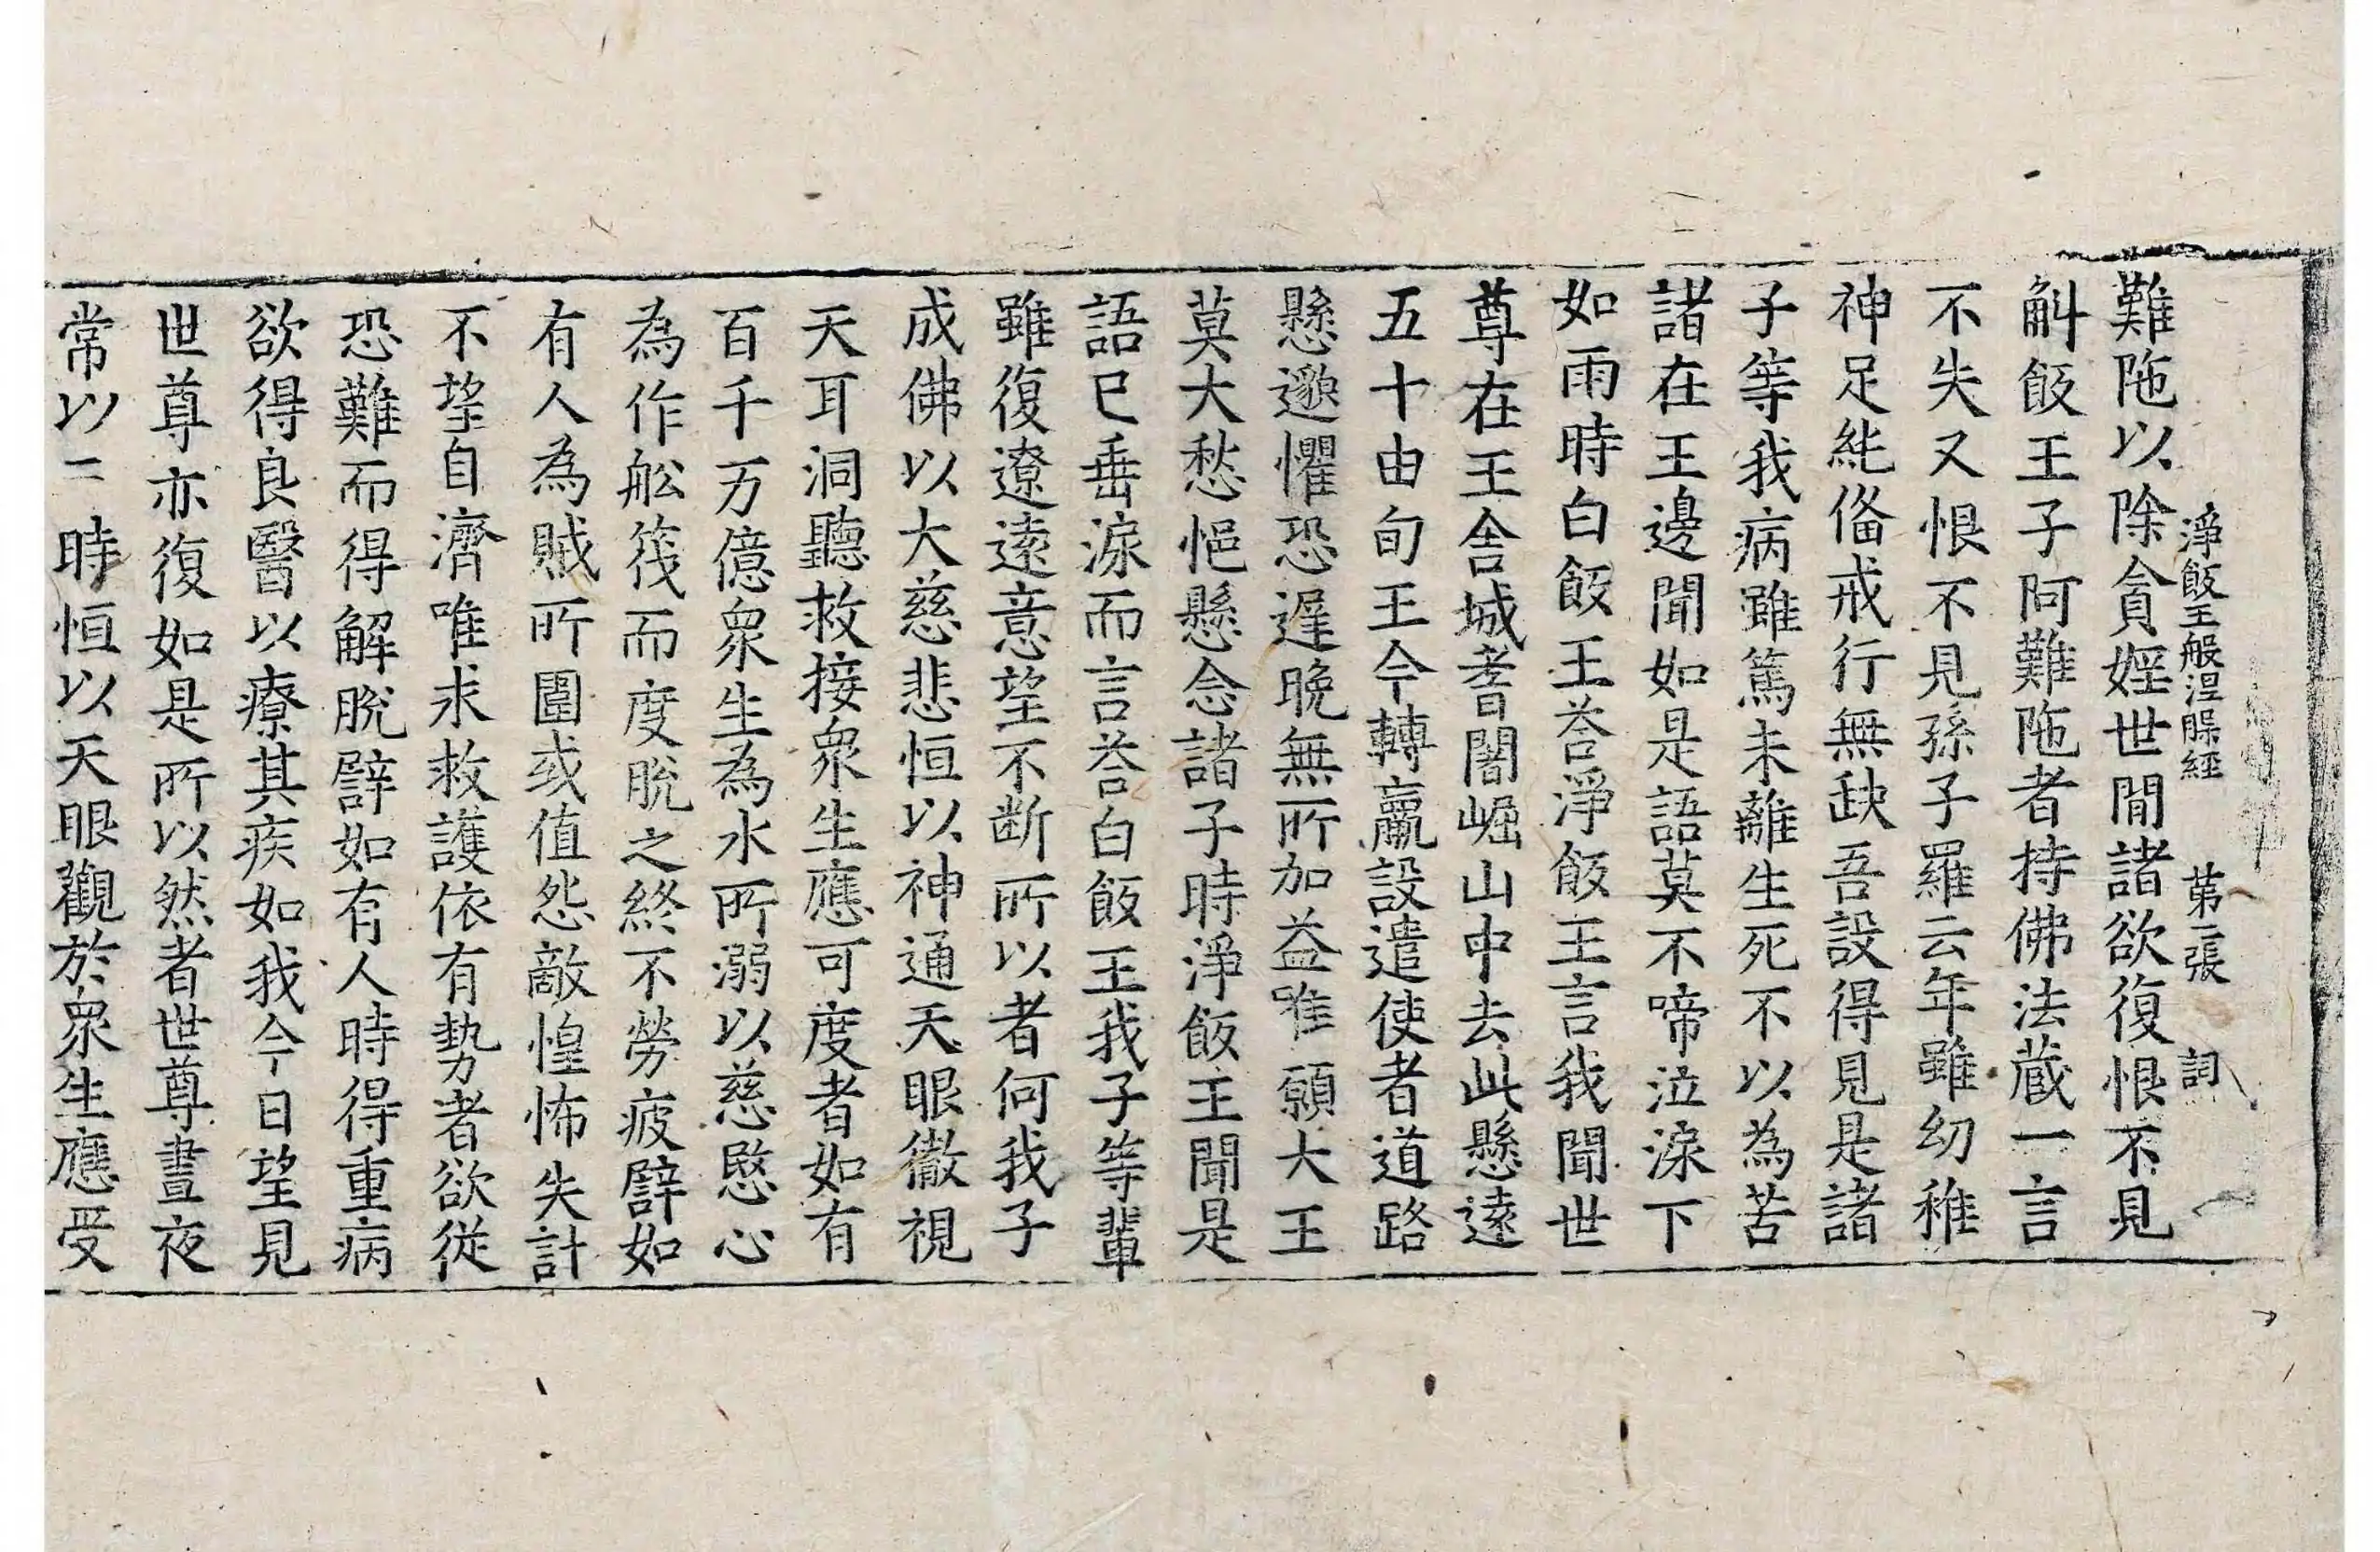 淨飯王般涅槃經 第二張 詞
難陁以除貪婬世間諸欲復恨不見
斛飯王子阿難陁者持佛法藏一言
不失又恨不見孫子羅云年雖幼稚
神足純俻戒行無缺吾設得見是諸
子等我病雖篤未離生死不以為苦
諸在王邊聞如是語莫不啼泣淚下
如雨時白飯王荅淨飯王言我聞世
尊在王舍城耆闍崛山中去此懸遠
五十由旬王今轉羸設遣使者道路
懸邈懼恐遲晚無所加益唯願大王
莫大愁悒懸念諸子時淨飯王聞是
語已垂淚而言荅白飯王我子等輩
雖復遼遠意望不断所以者何我子
成佛以大慈悲恒以神通天眼徹視
天耳洞聽救接衆生應可度者如有
百千万億衆生為水所溺以慈愍心
為作舩筏而度脫之終不勞疲譬如
有人為賊所圍或值怨敵惶怖失計
不望自濟唯求救護依有勢者欲從
恐難而得解脫譬如有人時得重病
欲得良醫以療其疾如我今日望見
世尊亦復如是所以然者世尊晝夜
常以三時恒以天眼觀於衆生應受